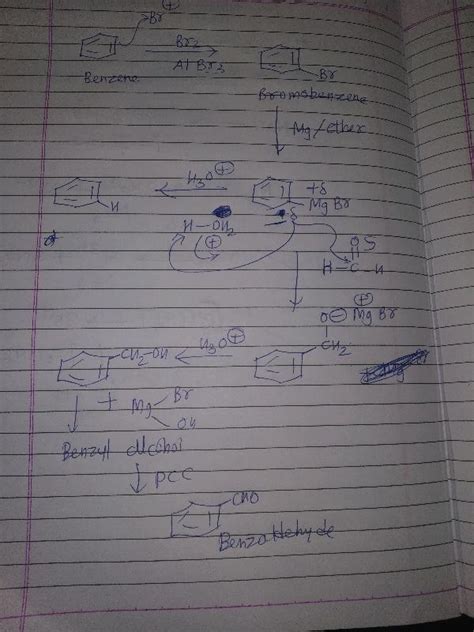 Br ⊕
Br2
AlBr3
Br
Benzene
Bromobenzene
Mg/ether
H3O⊕
+δ
MgBr
H
H-OH2
⊕
O
H-C-H
O⊖ ⊕MgBr
CH2
H3O⊕
CH2-OH
+ Mg Br
OH
Benzyl alcohol
PCC
CHO
Benzaldehyde